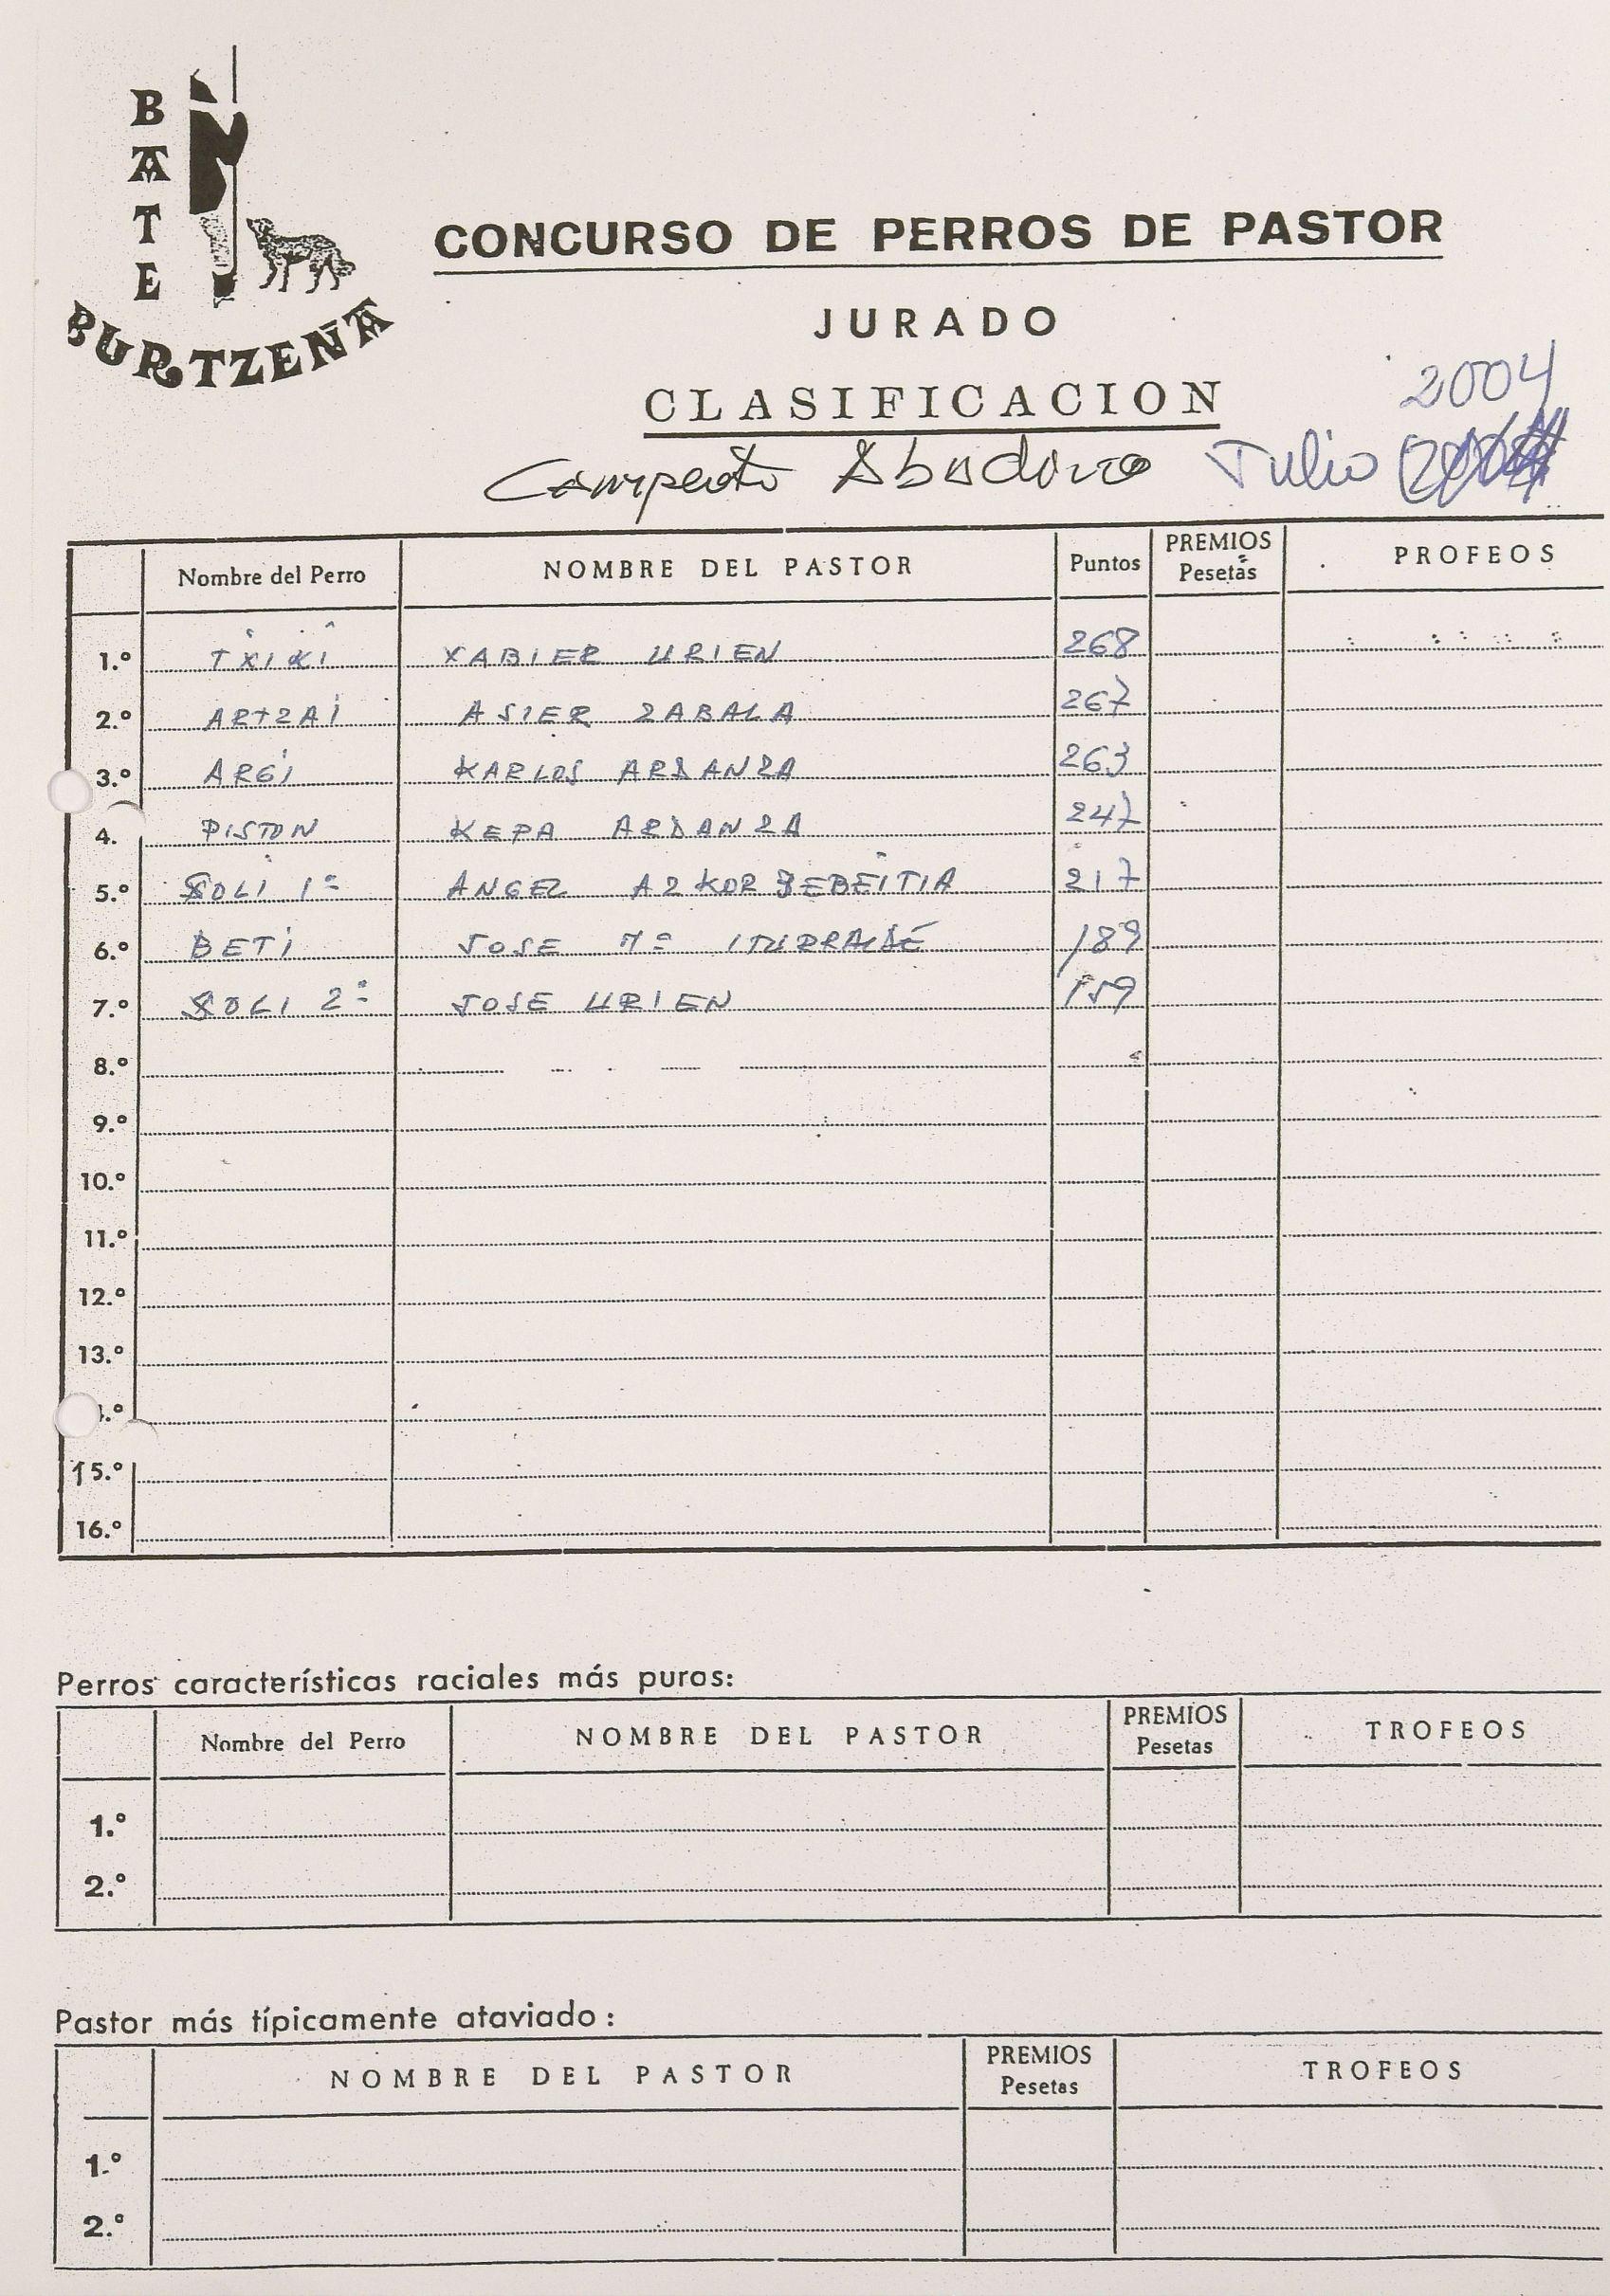 BATE
BURTZEÑA
CONCURSO DE PERROS DE PASTOR
JURADO
CLASIFICACION
2004
Campeoto Abadono Julio
Nombre del Perro NOMBRE DEL PASTOR Puntos PREMIOS Pesetas PROFEOS
1.º TXIKI XABIER URIEN 268
2.º ARTZAI ASIER ZABALA 267
3.º ARGI KARLOS ARDANZA 263
4. PISTON KEPA ARDANZA 247
5.º XOLI 1º ANGEL AZKORBEBEITIA 217
6.º BETI JOSE Mª ITURRALDE 189
7.º XOLI 2º JOSE URIEN 159
8.º
9.º
10.º
11.º
12.º
13.º
.º
15.º
16.º
Perros características raciales más puras:
Nombre del Perro NOMBRE DEL PASTOR PREMIOS Pesetas TROFEOS
1.º
2.º
Pastor más típicamente ataviado:
NOMBRE DEL PASTOR PREMIOS Pesetas TROFEOS
1.º
2.º